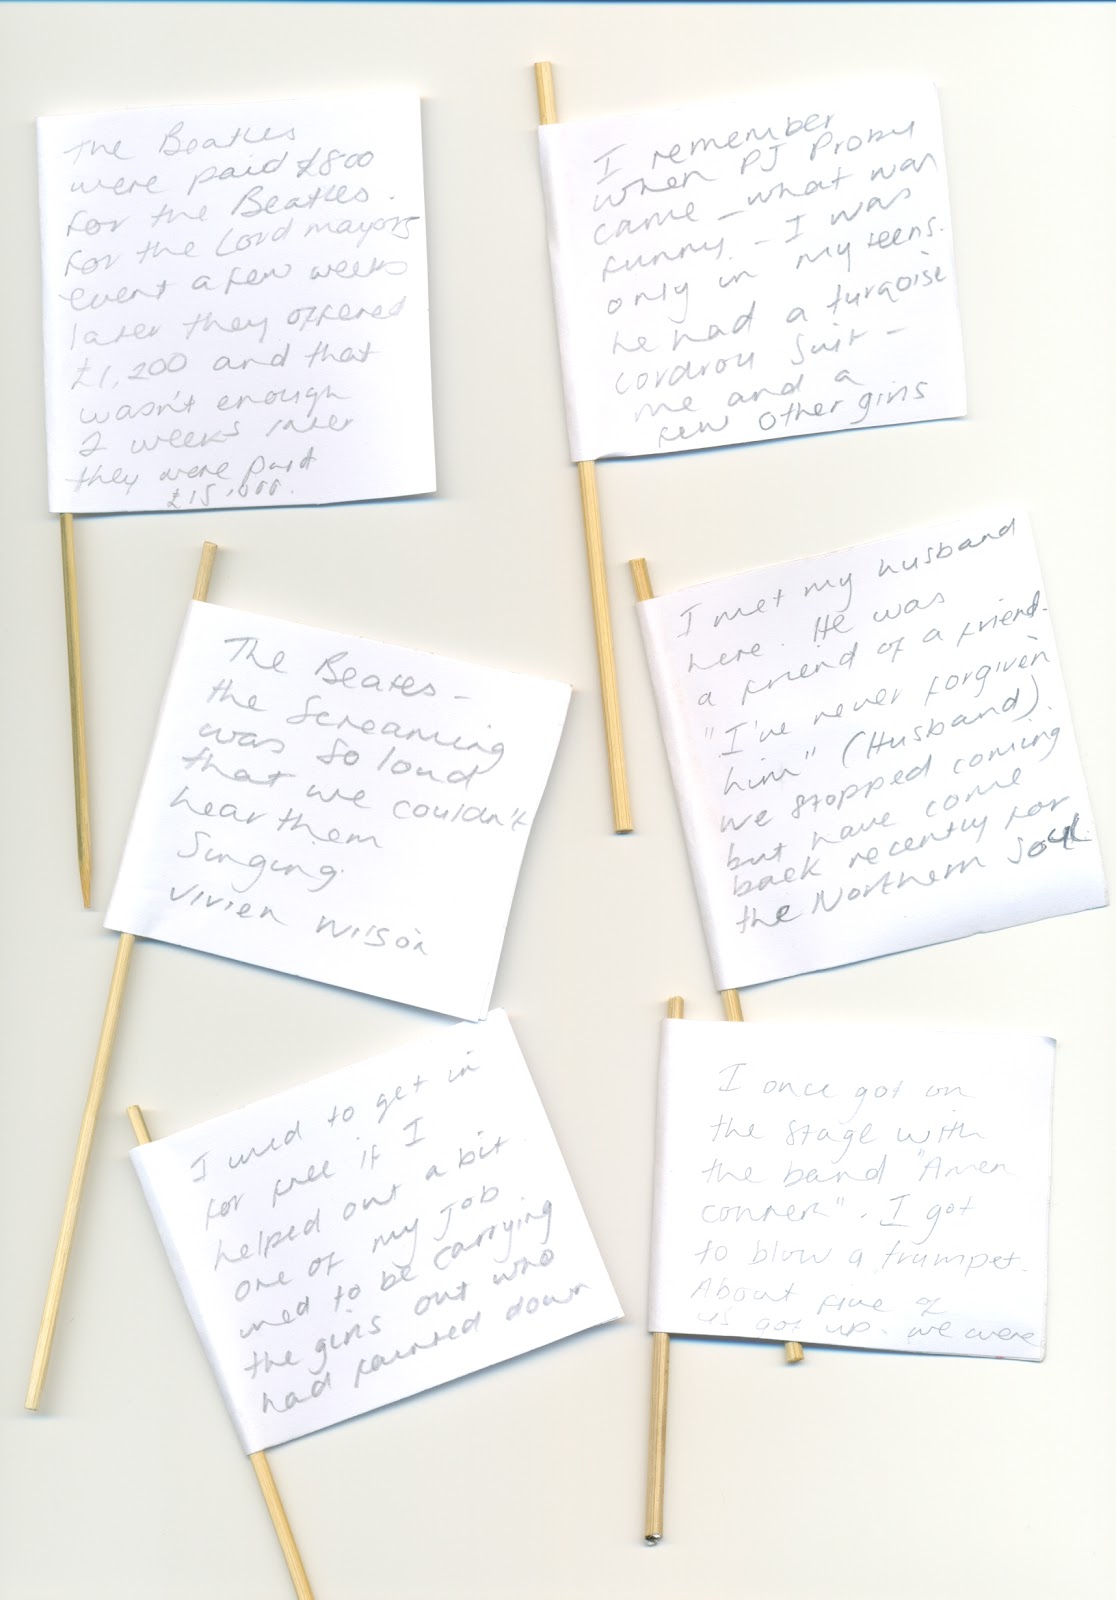 The Beatles
were paid £800
for the Beatles.
for the Lord mayors
event a few weeks
later they offered
£1,200 and that
wasn't enough
2 weeks later
they were paid
£15,000.
I remember
when PJ Proby
came - what was
funny - I was
only in my teens.
he had a turqoise
cordroy suit -
me and a
few other girls
The Beatles -
the screaming
was so loud
that we couldn't
hear them
Singing.
Vivien Wilson
I met my husband
here. He was
a friend of a friend.
"I've never forgiven
him" (Husband).
we stopped coming
but have come
back recently for
the Northern Soul.
I used to get in
for free if I
helped out a bit.
one of my job
used to be carrying
the girls out who
had fainted down
I once got on
the stage with
the band "Amen
conner". I got
to blow a trumpet.
About five of
us got up. we were